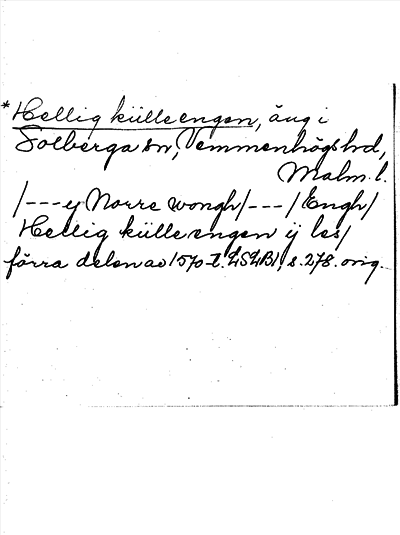 *Hellig külle engen, äng i
Solberga sn, Vemmenhögs hd,
Malm. l.
/---y Norre wongh/---/Engh/
Hellig külle engen ij les/
förra delen av 1570-t. LSLB1, s. 278. orig.